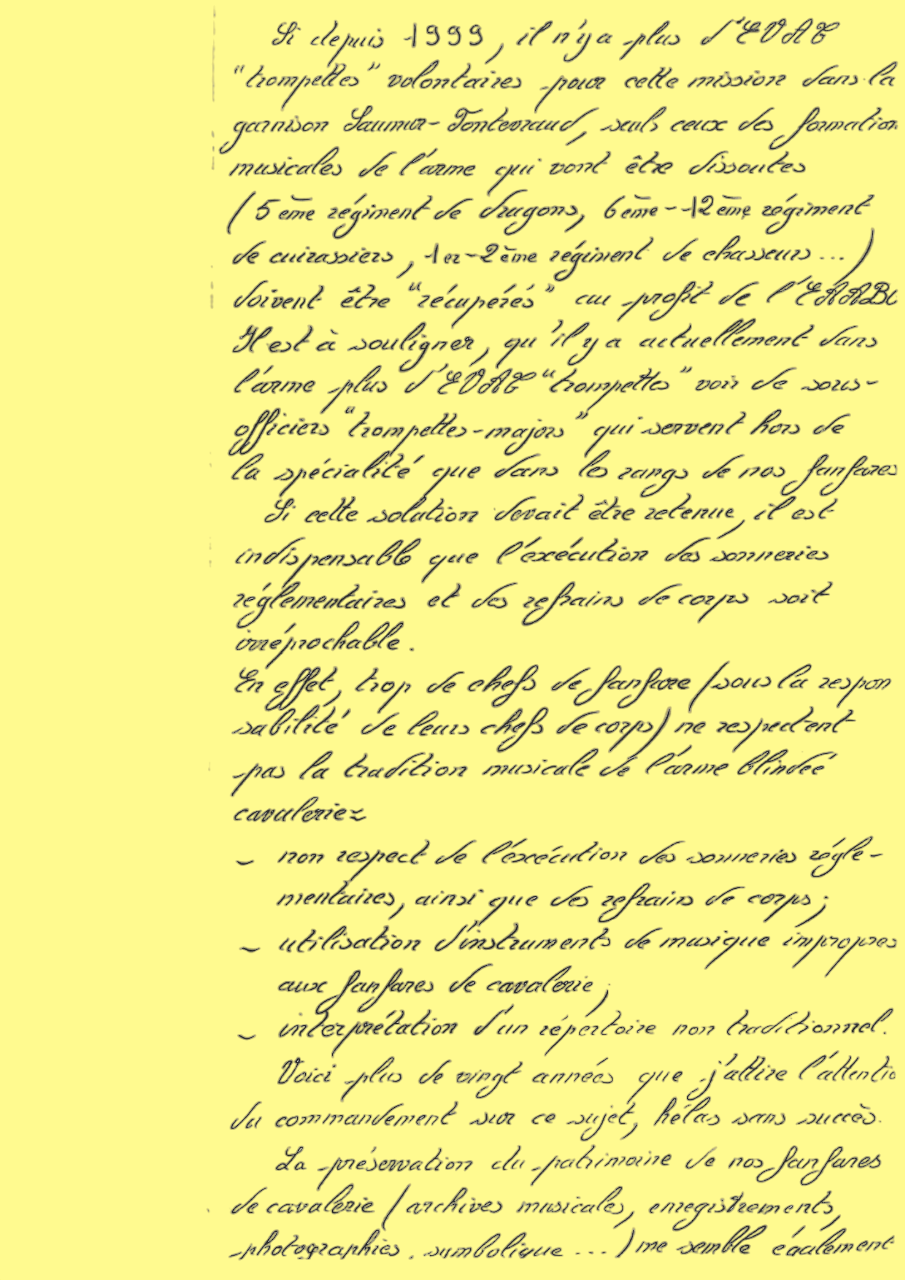 Si depuis 1999, il n'y a plus d'EVAT
"trompettes" volontaires pour cette mission dans la
garnison Saumur-Fontevraud, seuls ceux des formation
musicales de l'arme qui vont être dissoutes
(5ème régiment de dragons, 6ème-12ème régiment
de cuirassiers, 1er-2ème régiment de chasseurs...)
doivent être "récupérés" au profit de l'EAABC
Il est à souligner, qu'il y a actuellement dans
l'arme plus d'EVAT "trompettes" voir de sous-
officiers "trompettes-majors" qui servent hors de
la spécialité que dans les rangs de nos fanfares
Si cette solution devait être retenue, il est
indispensable que l'exécution des sonneries
réglementaires et des refrains de corps soit
irréprochable.
En effet, trop de chefs de fanfare (sous la respon
sabilité de leurs chefs de corps) ne respectent
pas la tradition musicale de l'arme blindée
cavalerie:
- non respect de l'exécution des sonneries régle-
mentaires, ainsi que des refrains de corps;
- utilisation d'instruments de musique impropres
aux fanfares de cavalerie;
- interprétation d'un répertoire non traditionnel.
Voici plus de vingt années que j'attire l'attentio
du commandement sur ce sujet, hélas sans succès.
La préservation du patrimoine de nos fanfares
de cavalerie (archives musicales, enregistrements,
photographies, symbolique...) me semble également